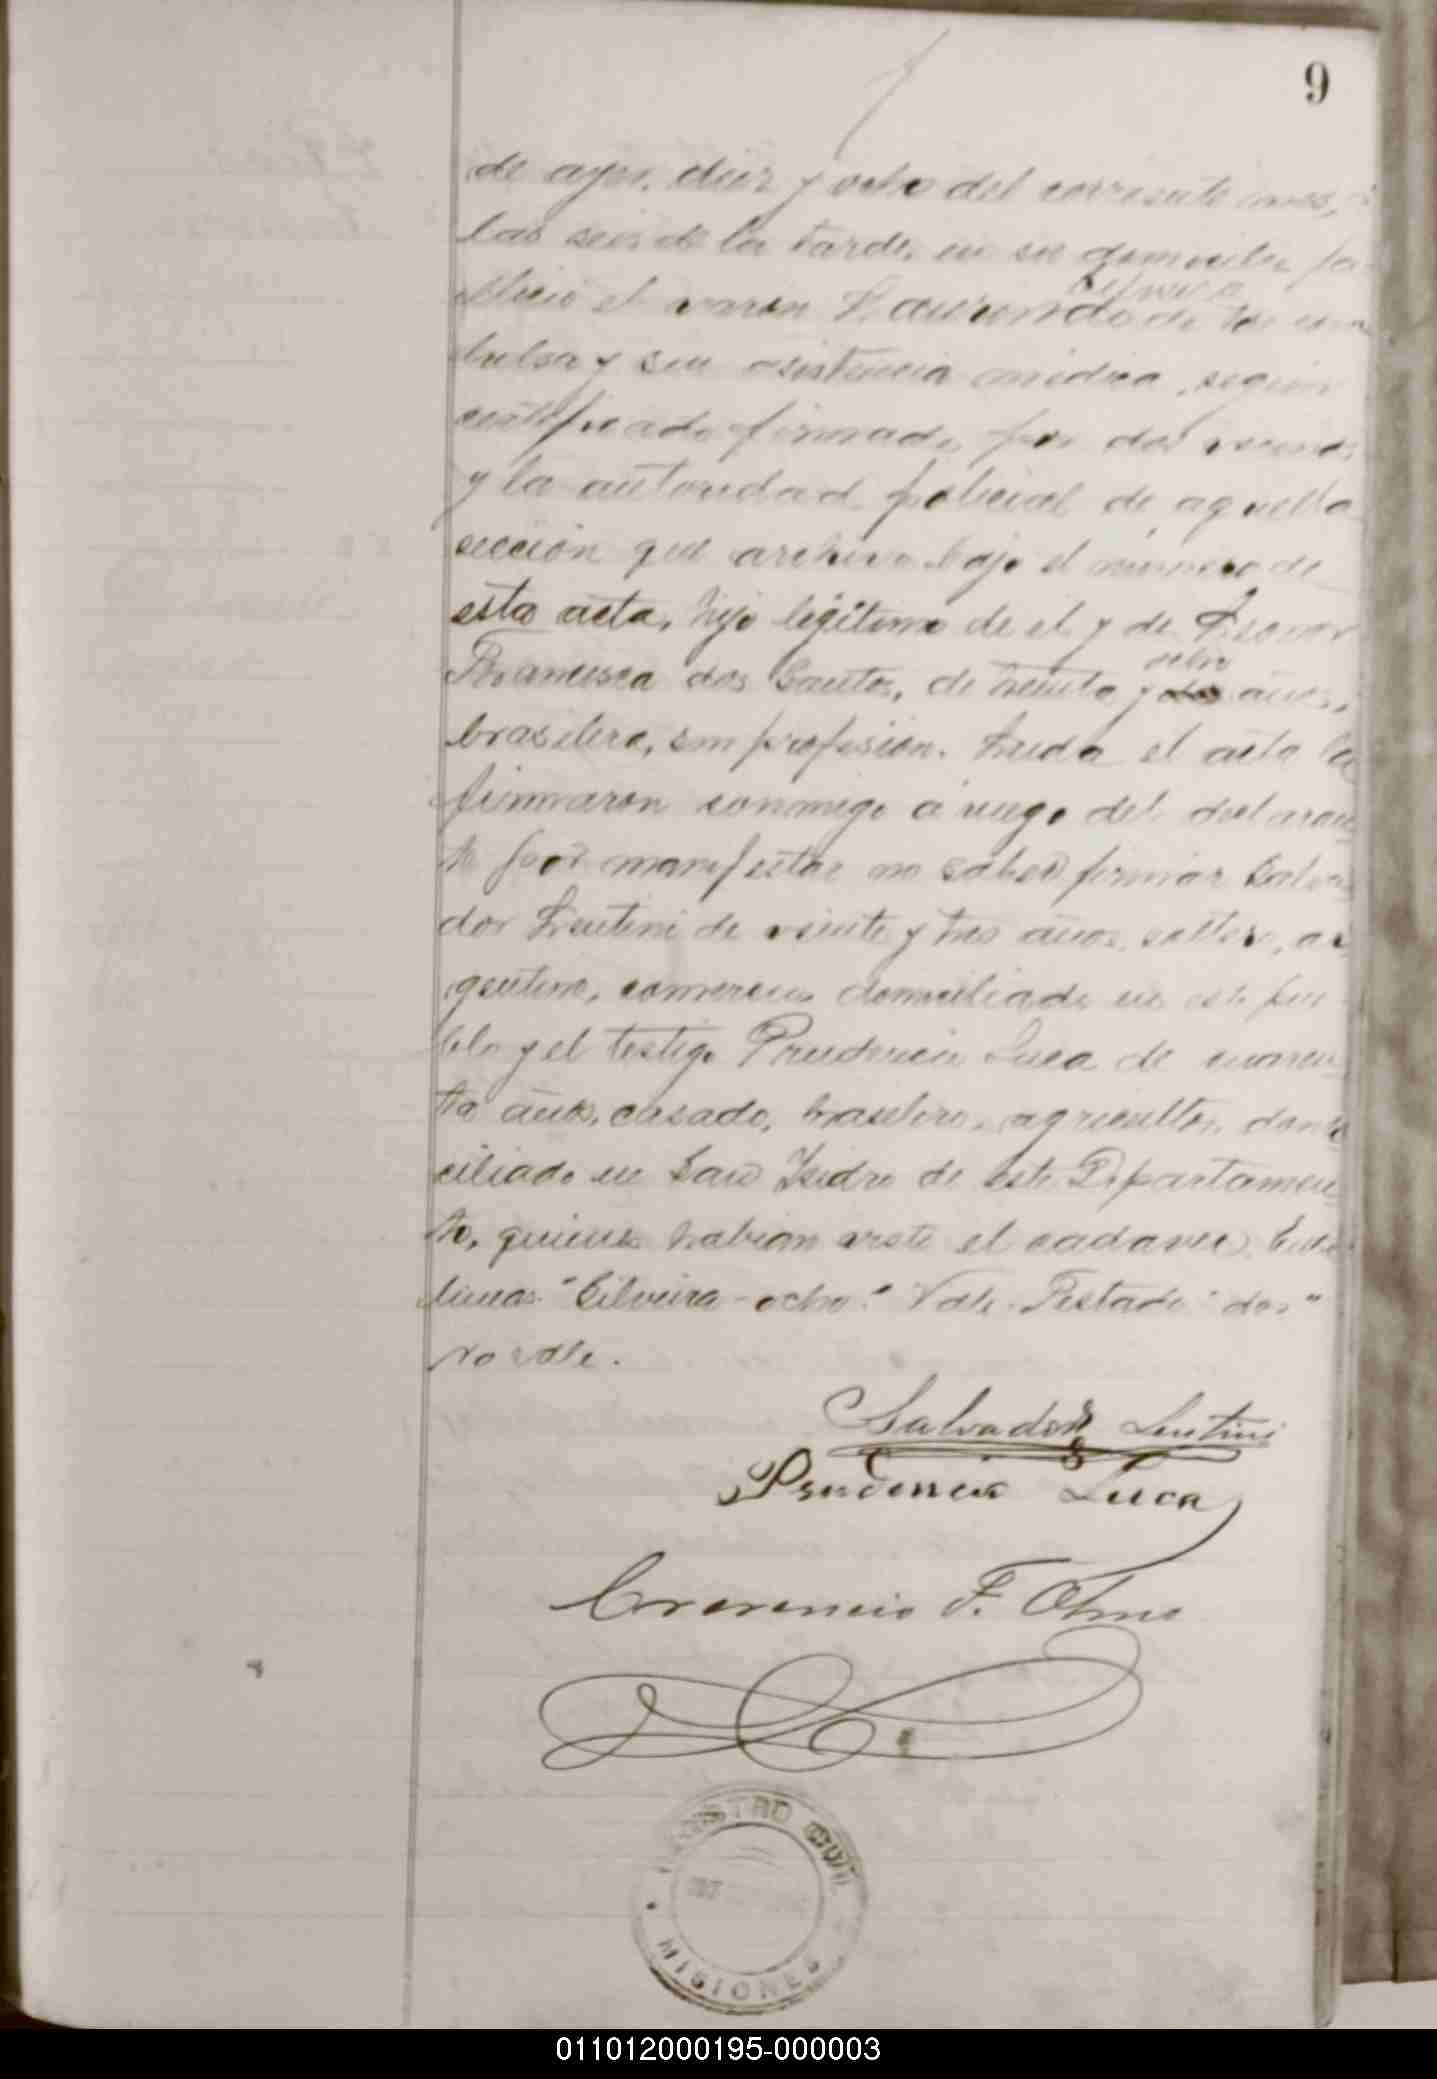 9
de ayer, diez y ocho del corriente mes, á
las seis de la tarde, en su domicilio fa
Silveira
lleció el varón Laurindo de tos con
bulsa y sin asistencia médica, según
certificado firmado por dos vecinos
y la autoridad policial de aquella
sección que archivo bajo el número de
esta acta, hijo legítimo de el y de Leonor
ocho
Francisca dos Santos, de treinta y dos años,
brasilera, sin profesión. Leida el acta la
firmaron conmigo á ruego del declaran
te por manifestar no saber firmar Salva
dor Lentini de veinte y tres años, soltero, ar
gentino, comercio, domiciliado en este pue
blo y el testigo Prudencio Luca de cuaren
ta años, casado, brasilero, agricultor, domi
ciliado en San Isidro de este Departamen
to, quienes habian visto el cadaver. Entre
lineas "Silveira - ocho." Vale. Testado "dos"
No vale.
Salvador Lentini
Prudencio Luca
Crecencio F. Olmo
REGISTRO CIVIL
MISIONES
011012000195-000003